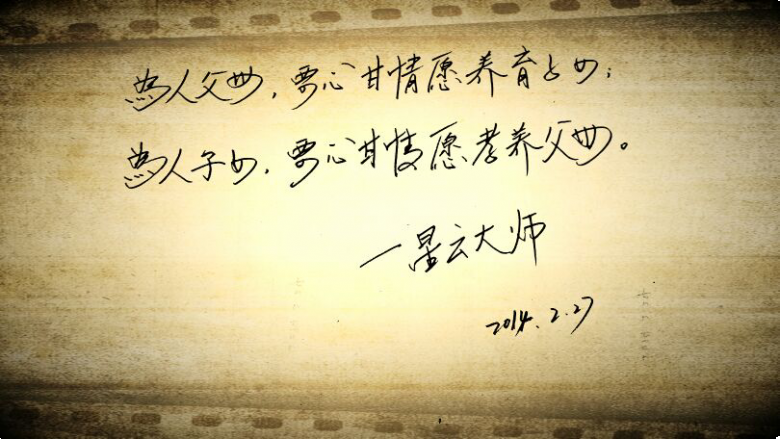 為人父母，要心甘情愿养育子女；
為人子女，要心甘情愿孝养父母。
—星云大师
2014.2.27